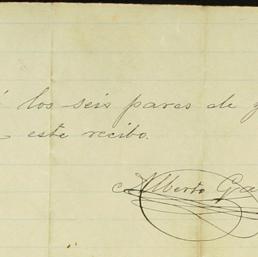 los seis pares de
este recibo.
Alberto Ga